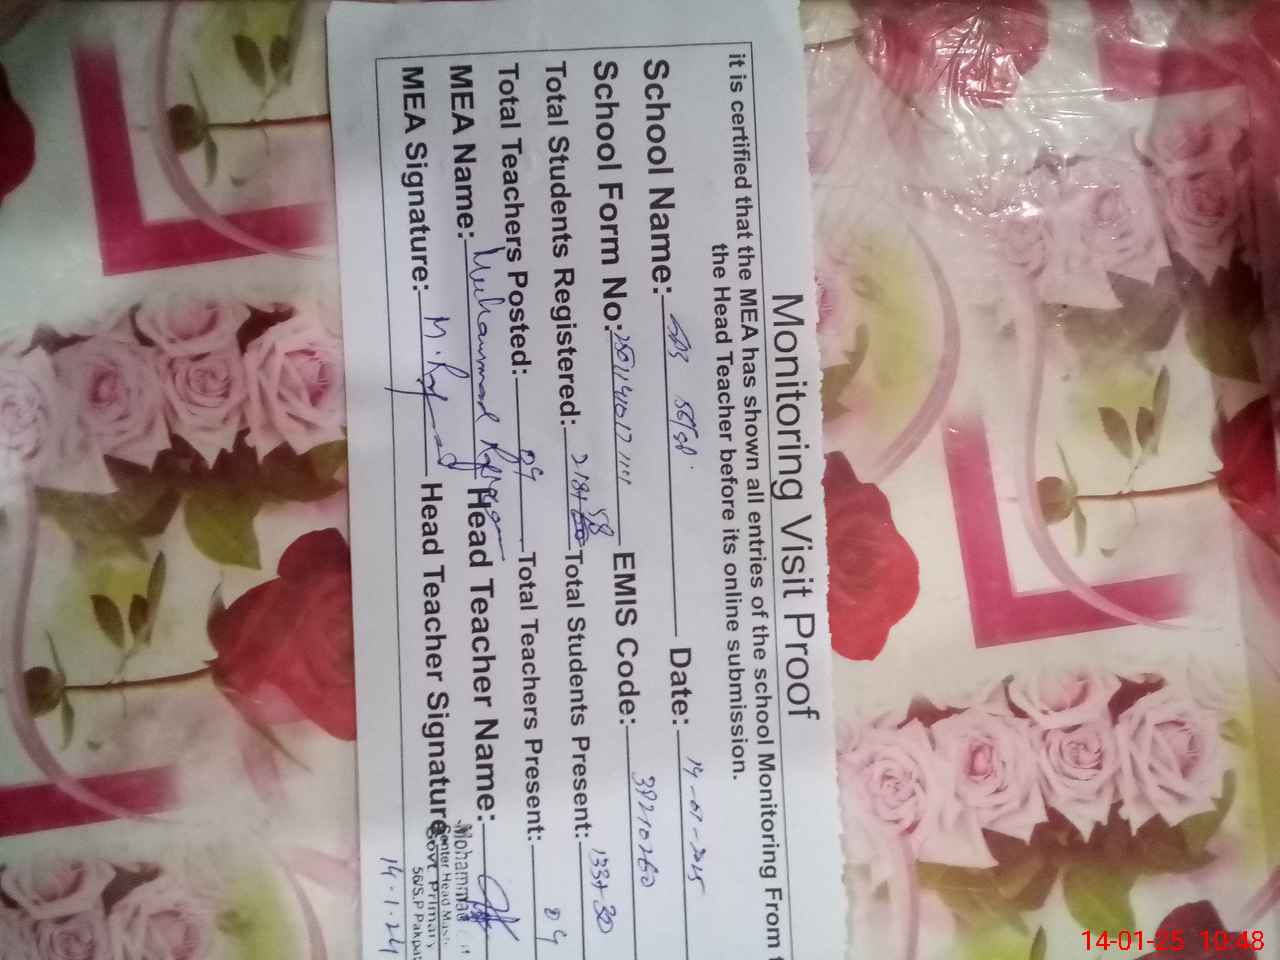 Monitoring Visit Proof
it is certified that the MEA has shown all entries of the school Monitoring From t
the Head Teacher before its online submission.
School Name: 56/SP. Date: 14-01-2025
School Form No: EMIS Code: 39210260
Total Students Registered: 218+ 58 Total Students Present: 133+30
Total Teachers Posted: 09 Total Teachers Present: 09
MEA Name: Muhammad Head Teacher Name:
MEA Signature: Head Teacher Signature
Mohammad
Govt. Primary
56/S.P Pakpat
14.1.24
14-01-25 10:48